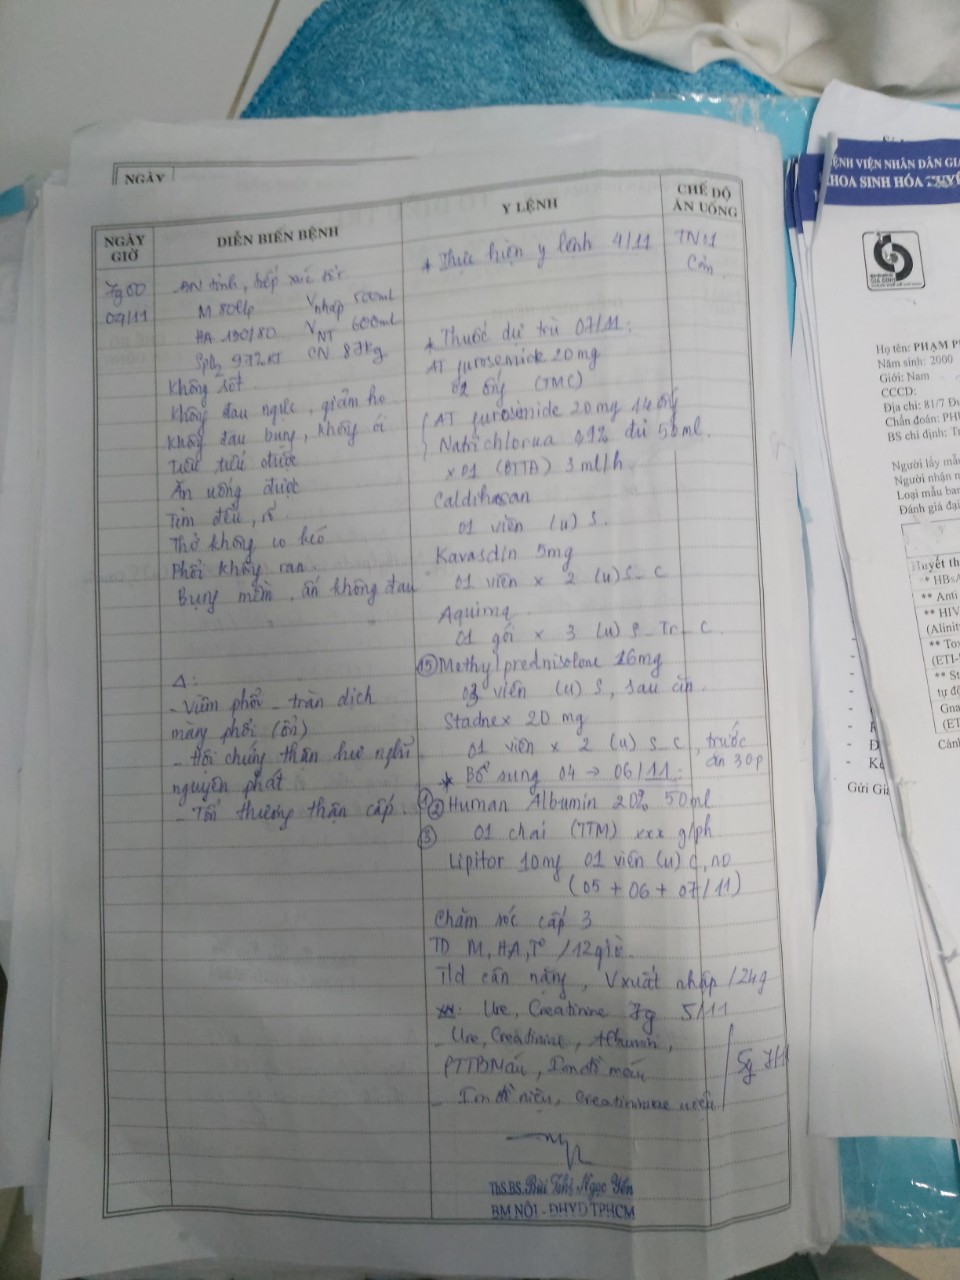 NGÀY
NGÀY GIỜ
DIỄN BIẾN BỆNH
Y LỆNH
CHẾ ĐỘ ĂN UỐNG
7g00
04/11
BN tỉnh, tiếp xúc tốt
M 80 l/p V nhập 500ml
HA 130/80 V NT 600ml
SpO2 97% KT CN 87kg
Không sốt.
Không đau ngực, giảm ho
Không đau bụng, không ói
Tiêu tiểu được
Ăn uống được
Tim đều, rõ.
Thở không co kéo
Phổi không ran
Bụng mềm, ấn không đau
Δ:
- Viêm phổi - tràn dịch
màng phổi (ổn)
- Hội chứng thận hư nghĩ
nguyên phát
- Tổn thương thận cấp.
* Thực hiện y lệnh 4/11
TN11
Cơm
* Thuốc dự trù 07/11:
AT furosemide 20mg
02 ống (TMC)
AT furosemide 20mg 14 ống
Natri chlorua 0,9% đủ 50ml.
x 01 (BTTĐ) 3 ml/h
Caldihasan
01 viên (u) S.
Kavasdin 5mg
01 viên x 2 (u) S - C
Aquima
01 gói x 3 (u) S - Tr - C.
(15) Methylprednisolone 16mg
03 viên (u) S, sau ăn.
Stadnex 20 mg
01 viên x 2 (u) S - C, trước
ăn 30p
* Bổ sung 04 → 06/11:
(2) Human Albumin 20% 50ml
(3) 01 chai (TTM) xxx g/ph
Lipitor 10mg 01 viên (u) C, no
(05 + 06 + 07/11)
Chăm sóc cấp 3
TD M, HA, T° /12 giờ.
T/d cân nặng, V xuất nhập /24g
XN: Ure, Creatinine 7g 5/11
- Ure, Creatinine, Albumin,
PTTBMáu, Ion đồ máu
- Ion đồ niệu, Creatinine niệu
5g 7/11
ThS.BS. Bùi Thị Ngọc Yến
BM NỘI - ĐHYD TPHCM
BỆNH VIỆN NHÂN DÂN GIA
KHOA SINH HÓA
GIA ĐỊNH
Họ tên: PHẠM
Năm sinh: 2000
Giới: Nam
CCCD:
Địa chỉ: 81/7
Chẩn đoán:
BS chỉ định:
Người lấy mẫu
Người nhận
Loại mẫu
Đánh giá
Huyết th
* HBsA
** Anti
** HIV
(Alinit
** Tox
(ETI-
** St
tự đô
Gna
(ET
Cảnh
Gửi Gi